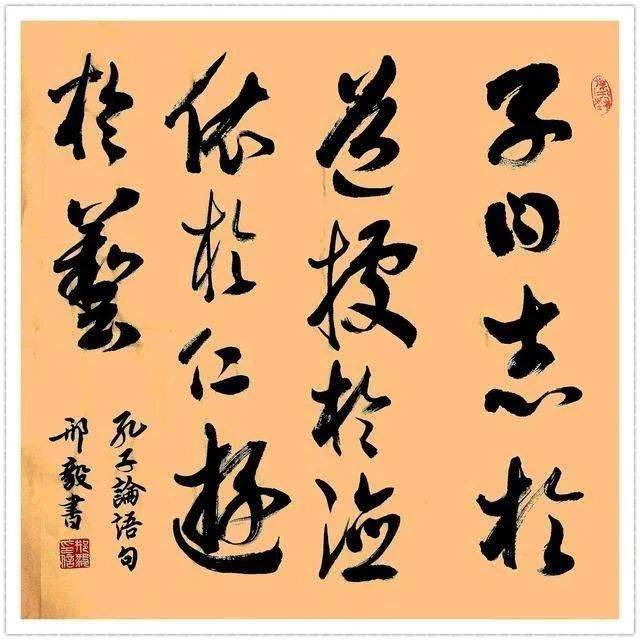 子曰志於
道據於德
依於仁遊
於藝
孔子論語句
邢毅書